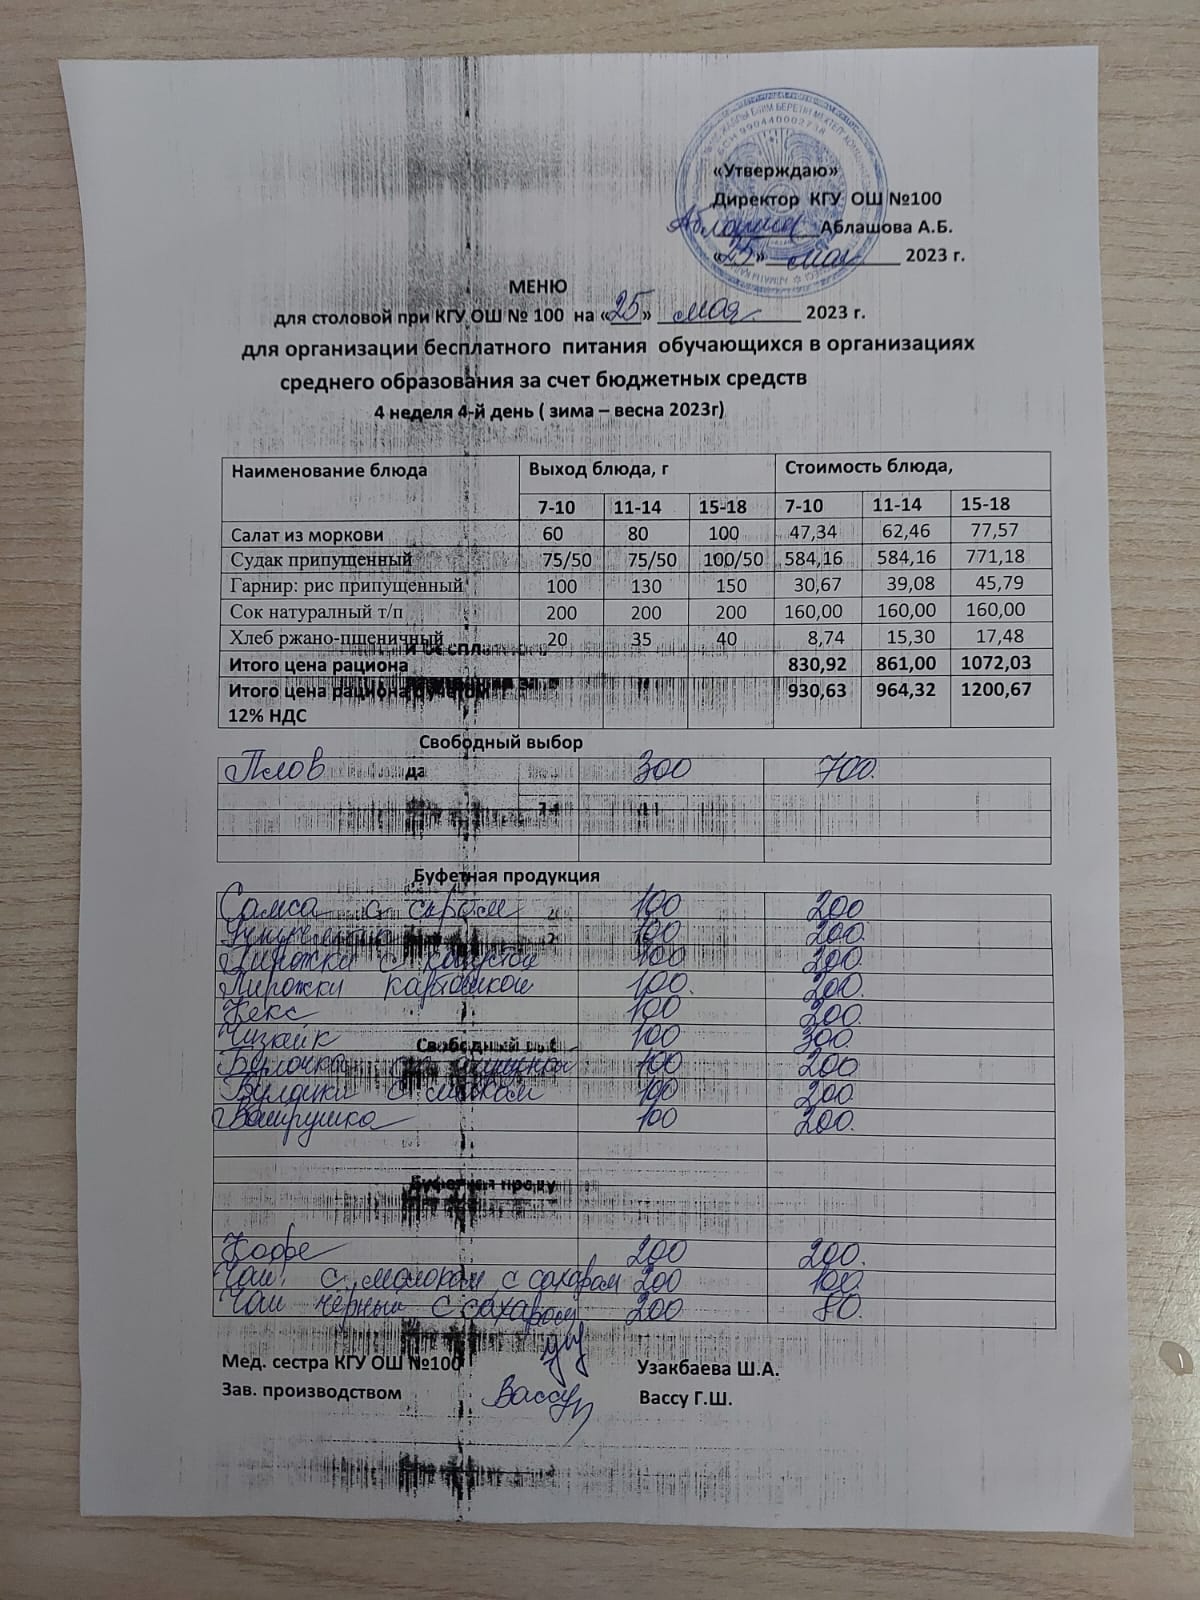 «Утверждаю»
Директор КГУ ОШ №100
Аблашова А.Б.
«25» мая 2023 г.
МЕНЮ
для столовой при КГУ ОШ № 100 на «25» мая 2023 г.
для организации бесплатного питания обучающихся в организациях
среднего образования за счет бюджетных средств
4 неделя 4-й день ( зима – весна 2023г)
Наименование блюда Выход блюда, г Стоимость блюда,
7-10 11-14 15-18 7-10 11-14 15-18
Салат из моркови 60 80 100 47,34 62,46 77,57
Судак припущенный 75/50 75/50 100/50 584,16 584,16 771,18
Гарнир: рис припущенный 100 130 150 30,67 39,08 45,79
Сок натуралный т/п 200 200 200 160,00 160,00 160,00
Хлеб ржано-пшеничный 20 35 40 8,74 15,30 17,48
Итого цена рациона 830,92 861,00 1072,03
Итого цена рациона с учетом 930,63 964,32 1200,67
12% НДС
Свободный выбор
Плов 300 700.
Буфетная продукция
Самса с сыром 100 200
100 200.
Пирожки с капустой 100 200
Пирожки картошкой 100. 200.
Кекс 100 200.
Чизкейк 100 300.
Булочка 100 200
Булочки с маком 100 200
Ватрушка 100 200.
Кофе 200 200.
Чай с молоком с сахаром 200 100
Чай черный с сахаром 200 80.
Мед. сестра КГУ ОШ №100 Узакбаева Ш.А.
Зав. производством Вассу Вассу Г.Ш.